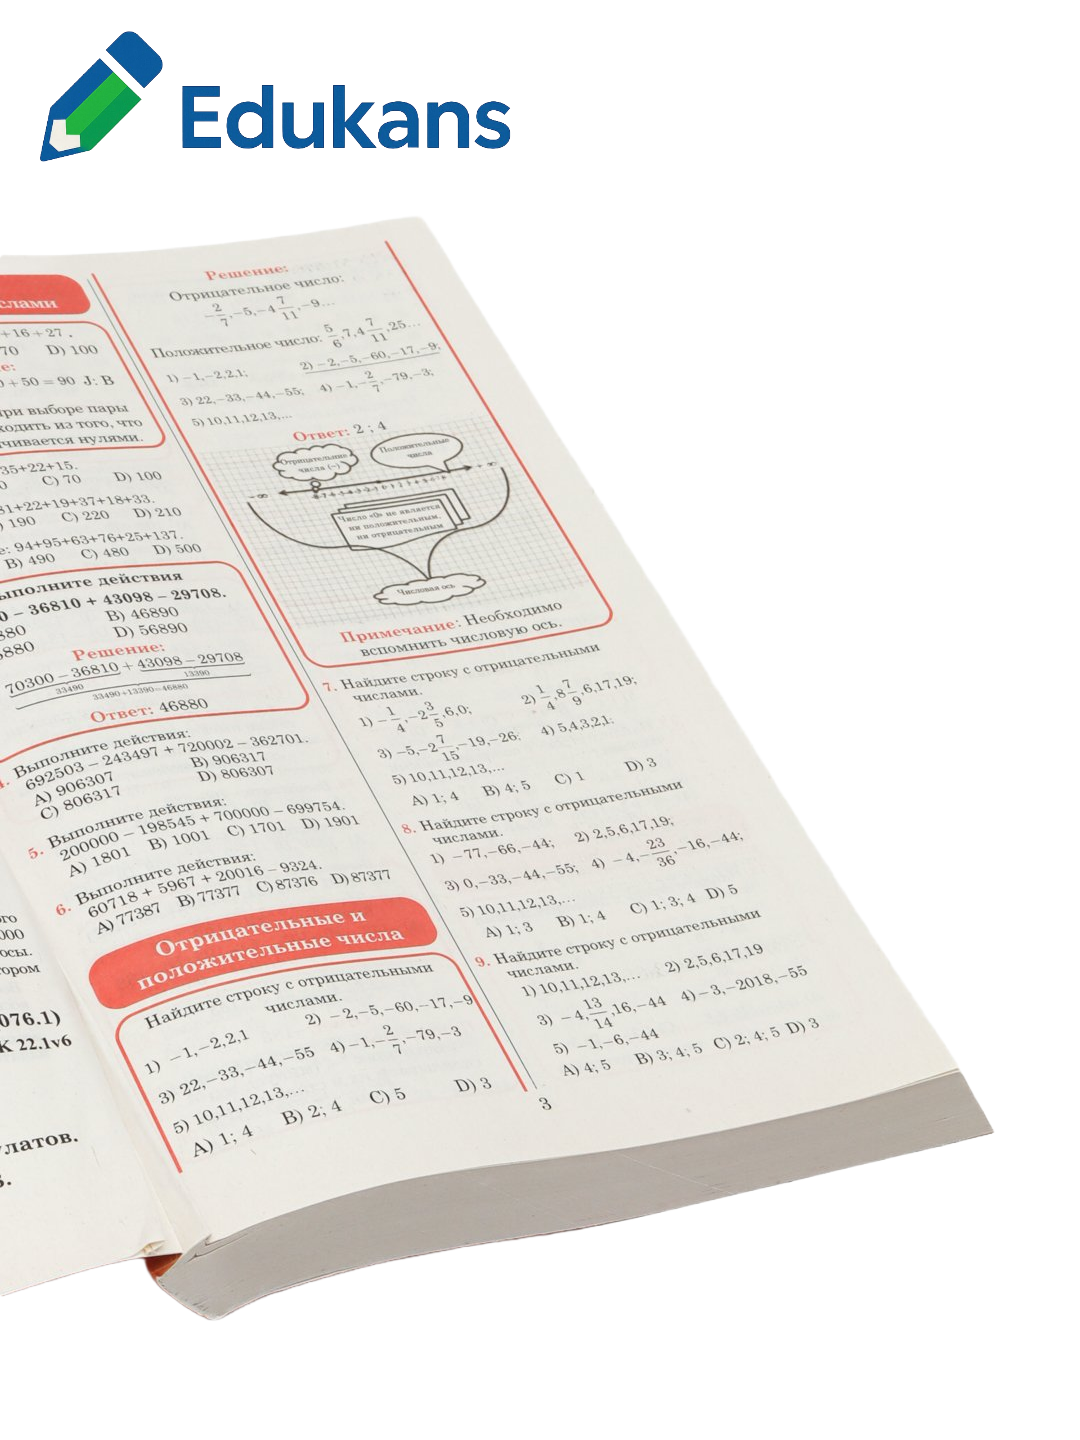 Edukans
слами
+16+27 .
70 D) 100
е:
0+50=90 J: B
при выборе пары
ходить из того, что
чивается нулями.
35+22+15.
0 C) 70 D) 100
31+22+19+37+18+33.
) 190 C) 220 D) 210
е: 94+95+63+76+25+137.
B) 490 C) 480 D) 500
ыполните действия
0 – 36810 + 43098 – 29708.
880 B) 46890
6880 D) 56890
Решение:
70300 – 36810 + 43098 – 29708
33490 13390
33490+13390=46880
Ответ: 46880
4. Выполните действия:
692503 – 243497 + 720002 – 362701.
A) 906307 B) 906317
C) 806317 D) 806307
5. Выполните действия:
200000 – 198545 + 700000 – 699754.
A) 1801 B) 1001 C) 1701 D) 1901
6. Выполните действия:
60718 + 5967 + 20016 – 9324.
A) 77387 B) 77377 C) 87376 D) 87377
Отрицательные и
положительные числа
Найдите строку с отрицательными
числами.
1) –1,–2,2,1 2) –2,–5,–60,–17,–9
3) 22,–33,–44,–55 4) –1,–2/7,–79,–3
5) 10,11,12,13,...
A) 1; 4 B) 2; 4 C) 5 D) 3
Решение:
Отрицательное число:
–2/7,–5,–4 7/11,–9...
Положительное число: 5/6,7,4 7/11,25...
1) –1,–2,2,1; 2) –2,–5,–60,–17,–9;
3) 22,–33,–44,–55; 4) –1,–2/7,–79,–3;
5) 10,11,12,13,...
Ответ: 2 ; 4
Отрицательние
числа (–)
Положительные
числа
– ∞ + ∞
Число «0» не является
ни положительным,
ни отрицательным
Числовая ось
Примечание: Необходимо
вспомнить числовую ось.
7. Найдите строку с отрицательными
числами.
1) –1/4,–2 3/5,6,0; 2) 1/4,8 7/9,6,17,19;
3) –5,–2 7/15,–19,–26; 4) 5,4,3,2,1;
5) 10,11,12,13,...
A) 1; 4 B) 4; 5 C) 1 D) 3
8. Найдите строку с отрицательными
числами.
1) –77,–66,–44; 2) 2,5,6,17,19;
3) 0,–33,–44,–55; 4) –4,–23/36,–16,–44;
5) 10,11,12,13,...
A) 1; 3 B) 1; 4 C) 1; 3; 4 D) 5
9. Найдите строку с отрицательными
числами.
1) 10,11,12,13,... 2) 2,5,6,17,19
3) –4,13/14,16,–44 4) –3,–2018,–55
5) –1,–6,–44
A) 4; 5 B) 3; 4; 5 C) 2; 4; 5 D) 3
3
ого
000
осы.
тором
076.1)
К 22.1я6
улатов.